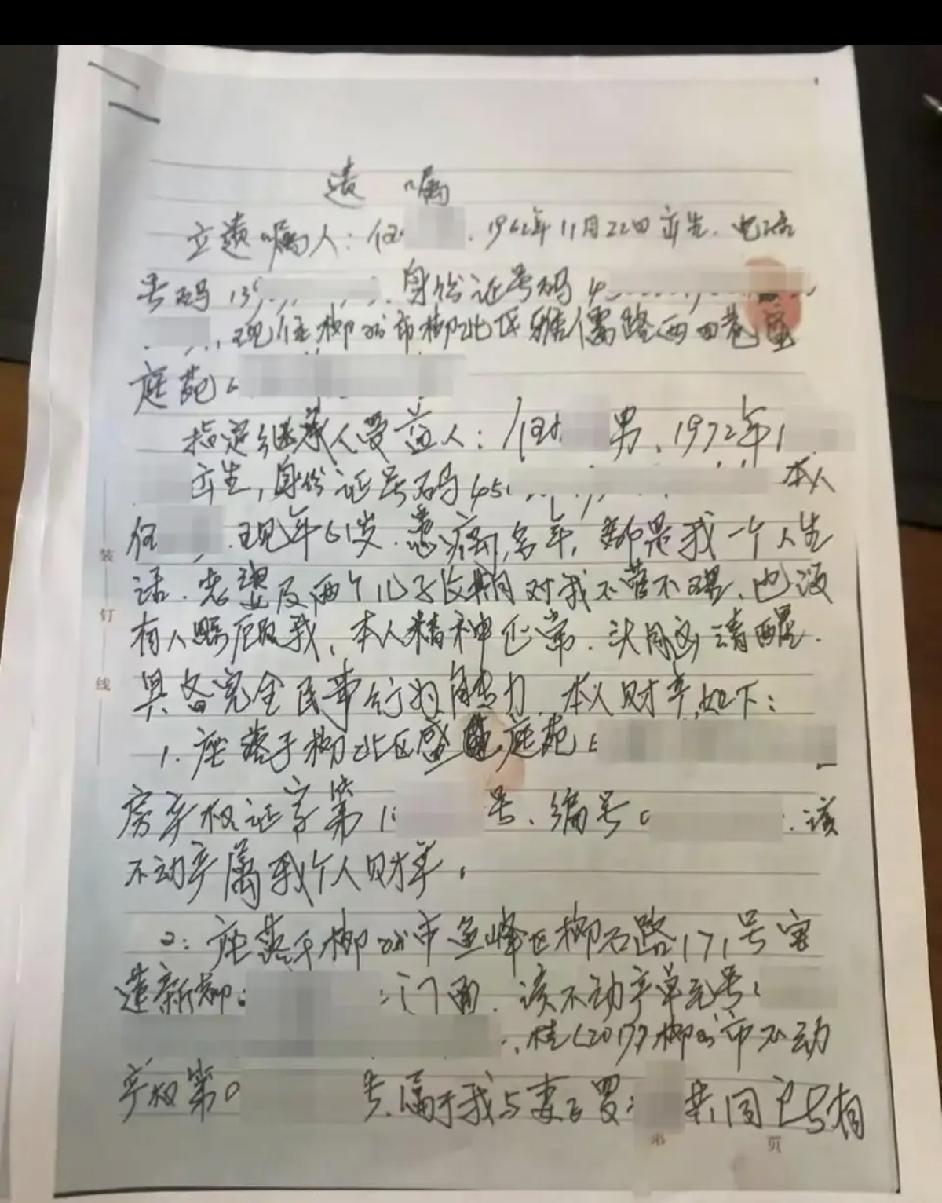 二
遗嘱
立遗嘱人：任 . 1962年11月22日出生. 电话
号码139 . 身份证号码4
. 现住柳州市柳北区雅儒路西四巷盛
庭苑
指定继承人受益人：任 男、1972年1
出生, 身份证号码45 本人
任 . 现年61岁. 患病多年, 都是我一个人生
活. 老婆及两个儿子长期对我不管不理、也没
有人照顾我, 本人精神正常. 头脑清醒.
具备完全民事行为能力. 本人财产如下：
1. 座落于柳北区盛 庭苑
房产权证字第1 号、编号0 . 该
不动产属我个人财产.
2: 座落于柳州市鱼峰区柳石路171号宝
莲新都 门面. 该不动产单元号
, 桂(2017)柳州市不动
产权第0 号. 属于我与妻子罗 共同
装
订
线
第 页